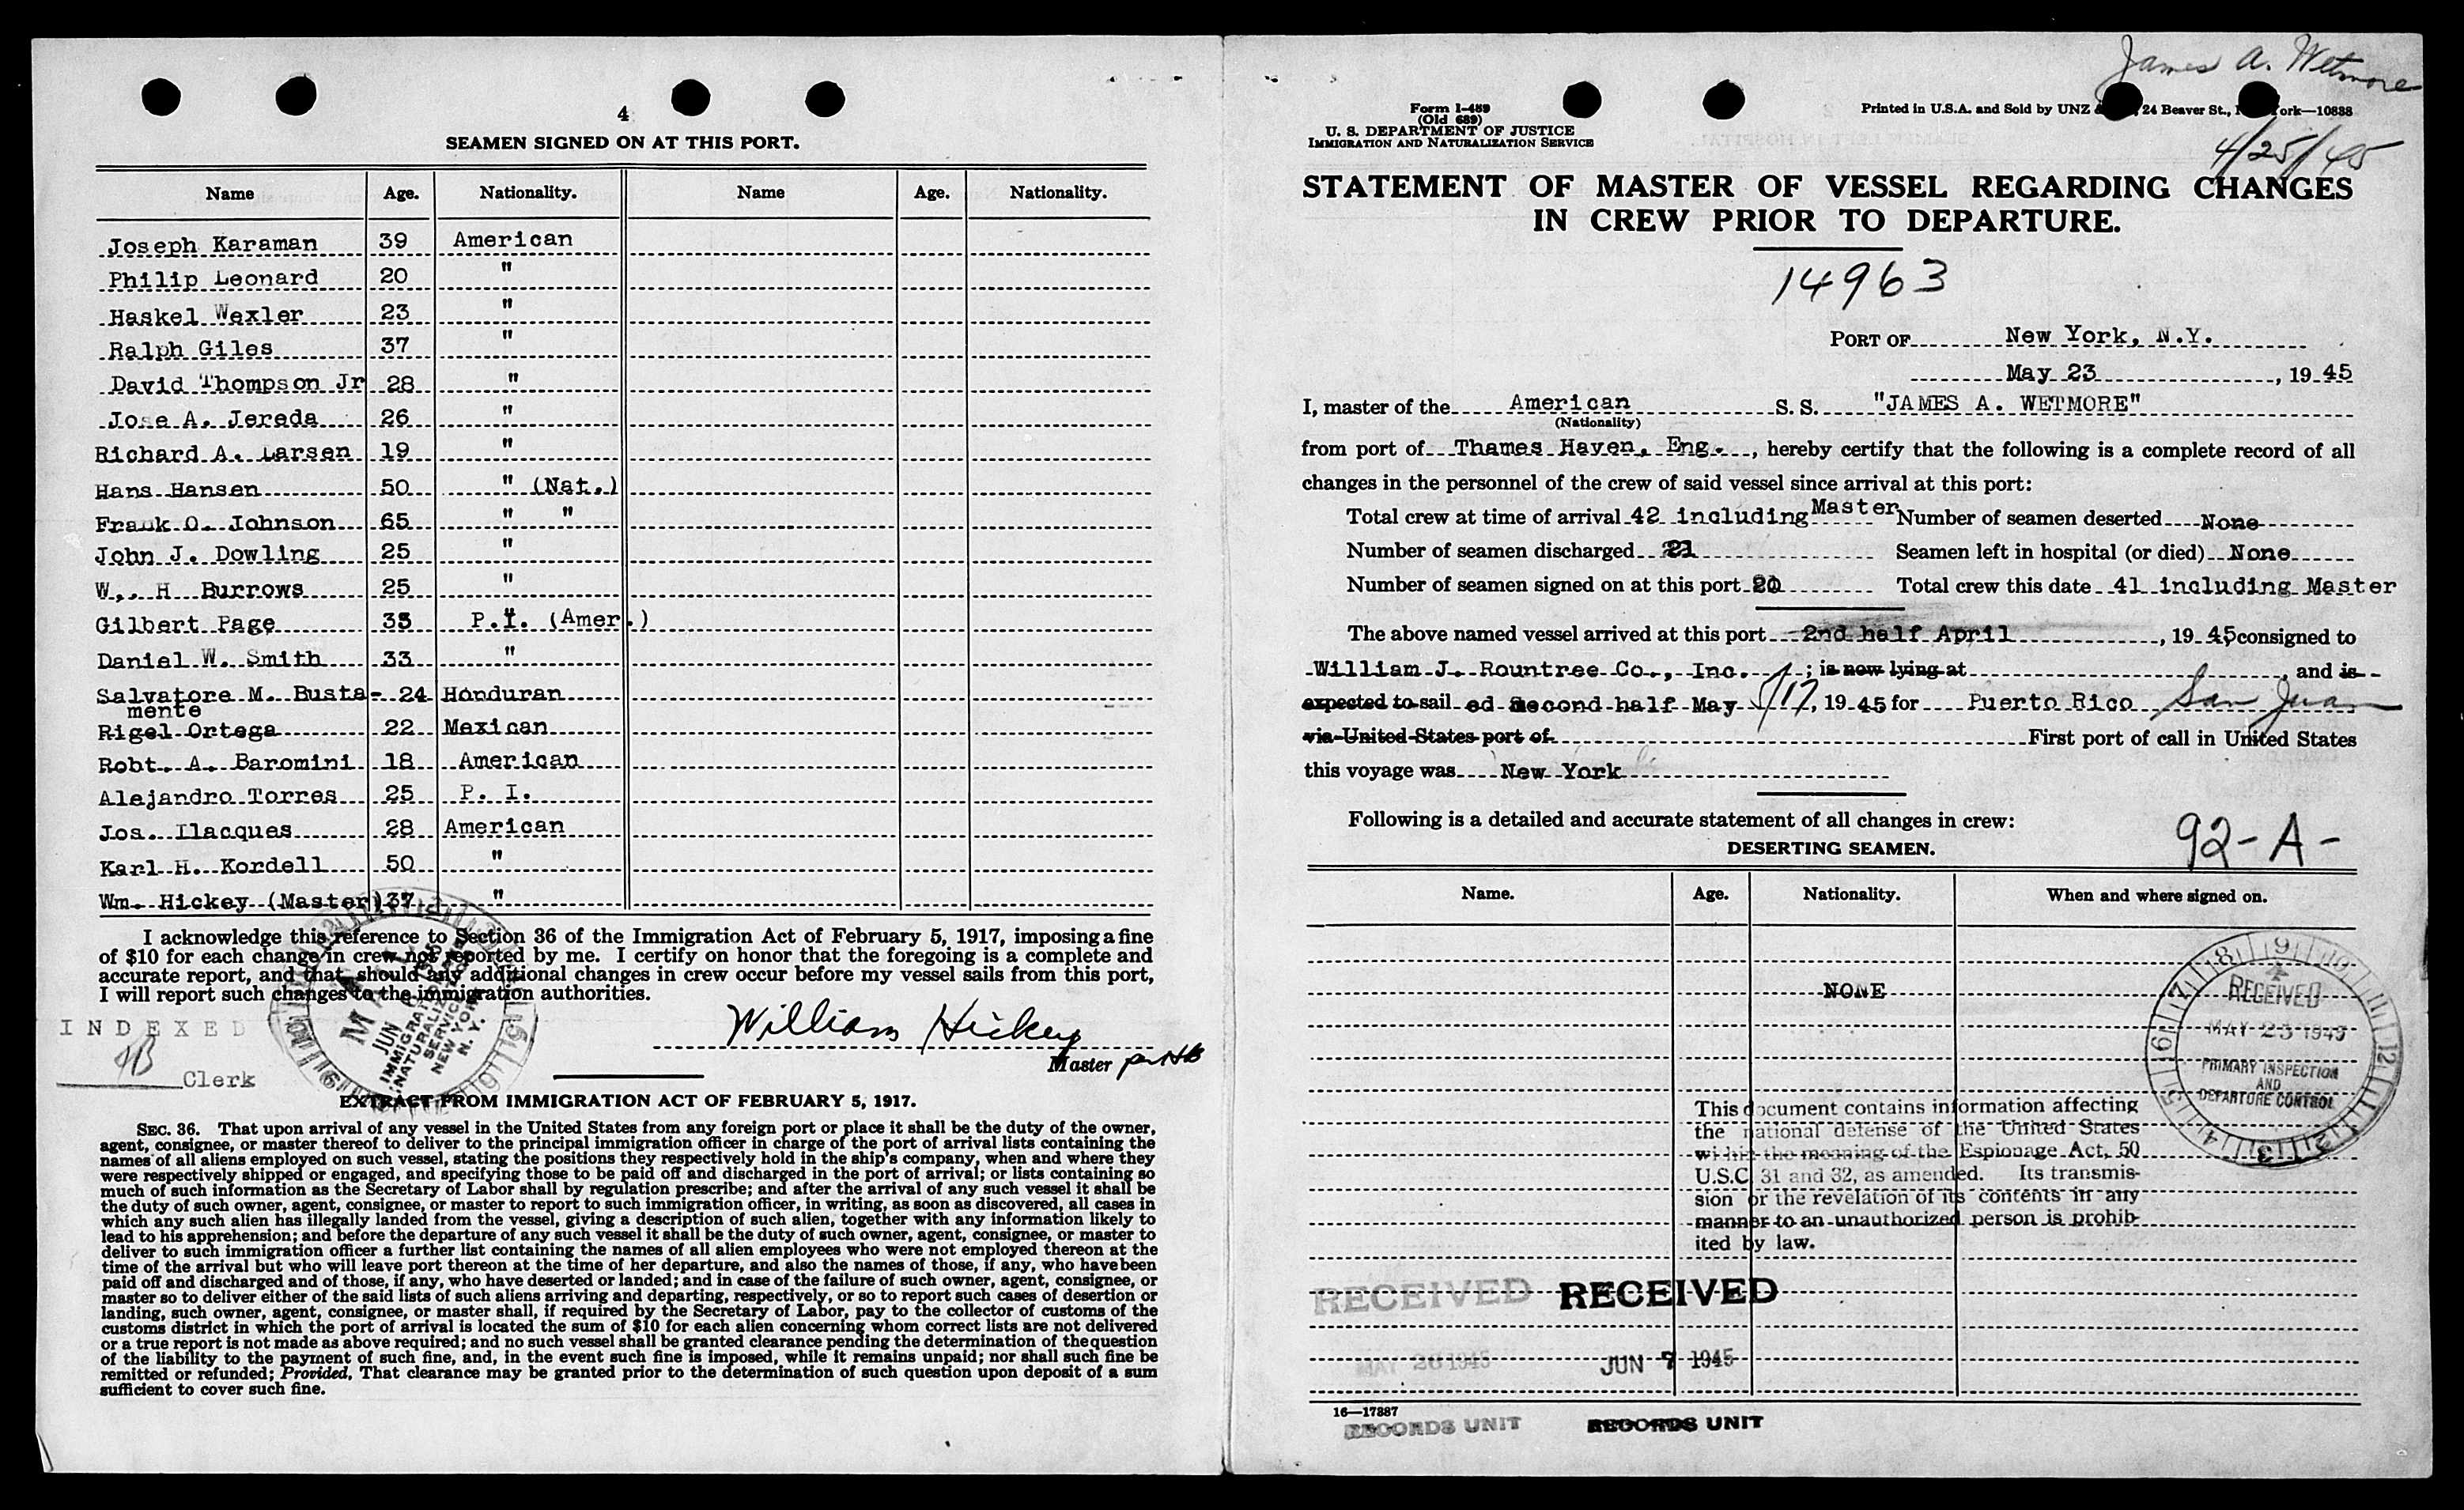 4
SEAMEN SIGNED ON AT THIS PORT.
Name Age. Nationality. Name Age. Nationality.
Joseph Karaman 39 American
Philip Leonard 20 "
Haskel Wexler 23 "
Ralph Giles 37 "
David Thompson Jr 28 "
Jose A. Jereda 26 "
Richard A. Larsen 19 "
Hans Hansen 50 " (Nat.)
Frank O. Johnson 65 " "
John J. Dowling 25 "
W,. H Burrows 25 "
Gilbert Page 33 P.I. (Amer.)
Daniel W. Smith 33 "
Salvatore M. Busta- 24 Honduran
mente
Rigel Ortega 22 Mexican
Robt. A. Baromini 18 American
Alejandro Torres 25 P. I.
Jos. Ilacques 28 American
Karl H. Kordell 50 "
Wm. Hickey (Master) 37 "
I acknowledge this reference to Section 36 of the Immigration Act of February 5, 1917, imposing a fine
of $10 for each change in crew not reported by me. I certify on honor that the foregoing is a complete and
accurate report, and that should any additional changes in crew occur before my vessel sails from this port,
I will report such changes to the immigration authorities.
INDEXED
Clerk
JUN
IMMIGRATION
NATURALIZATION
SERVICE
NEW YORK
N. Y.
William Hickey
Master per HB
EXTRACT FROM IMMIGRATION ACT OF FEBRUARY 5, 1917.
SEC. 36. That upon arrival of any vessel in the United States from any foreign port or place it shall be the duty of the owner,
agent, consignee, or master thereof to deliver to the principal immigration officer in charge of the port of arrival lists containing the
names of all aliens employed on such vessel, stating the positions they respectively hold in the ship's company, when and where they
were respectively shipped or engaged, and specifying those to be paid off and discharged in the port of arrival; or lists containing so
much of such information as the Secretary of Labor shall by regulation prescribe; and after the arrival of any such vessel it shall be
the duty of such owner, agent, consignee, or master to report to such immigration officer, in writing, as soon as discovered, all cases in
which any such alien has illegally landed from the vessel, giving a description of such alien, together with any information likely to
lead to his apprehension; and before the departure of any such vessel it shall be the duty of such owner, agent, consignee, or master to
deliver to such immigration officer a further list containing the names of all alien employees who were not employed thereon at the
time of the arrival but who will leave port thereon at the time of her departure, and also the names of those, if any, who have been
paid off and discharged and of those, if any, who have deserted or landed; and in case of the failure of such owner, agent, consignee, or
master so to deliver either of the said lists of such aliens arriving and departing, respectively, or so to report such cases of desertion or
landing, such owner, agent, consignee, or master shall, if required by the Secretary of Labor, pay to the collector of customs of the
customs district in which the port of arrival is located the sum of $10 for each alien concerning whom correct lists are not delivered
or a true report is not made as above required; and no such vessel shall be granted clearance pending the determination of the question
of the liability to the payment of such fine, and, in the event such fine is imposed, while it remains unpaid; nor shall such fine be
remitted or refunded; Provided, That clearance may be granted prior to the determination of such question upon deposit of a sum
sufficient to cover such fine.
James A. Wetmore
Form I-489
(Old 689)
U. S. DEPARTMENT OF JUSTICE
IMMIGRATION AND NATURALIZATION SERVICE
Printed in U.S.A. and Sold by UNZ & 24 Beaver St., ork—10838
4/25/45
STATEMENT OF MASTER OF VESSEL REGARDING CHANGES
IN CREW PRIOR TO DEPARTURE.
14963
PORT OF New York, N.Y.
May 23, 1945
I, master of the American S. S. "JAMES A. WETMORE"
(Nationality)
from port of Thames Haven, Eng., hereby certify that the following is a complete record of all
changes in the personnel of the crew of said vessel since arrival at this port:
Total crew at time of arrival 42 including Master Number of seamen deserted None
Number of seamen discharged 21 Seamen left in hospital (or died) None
Number of seamen signed on at this port 20 Total crew this date 41 including Master
The above named vessel arrived at this port 2nd half April, 1945 consigned to
William J. Rountree Co., Inc.; is now lying at and is
expected to sail ed Second half May 5/17, 1945 for Puerto Rico San Juan
via United States port of First port of call in United States
this voyage was New York
Following is a detailed and accurate statement of all changes in crew:
92-A-
DESERTING SEAMEN.
Name. Age. Nationality. When and where signed on.
NONE
RECEIVED
MAY 23 1945
PRIMARY INSPECTION
AND
DEPARTURE CONTROL
This document contains information affecting
the national defense of the United States
within the meaning of the Espionage Act, 50
U.S.C. 31 and 32, as amended. Its transmis-
sion or the revelation of its contents in any
manner to an unauthorized person is prohib-
ited by law.
RECEIVED RECEIVED
MAY 26 1945 JUN 7 1945
16—17887
RECORDS UNIT RECORDS UNIT